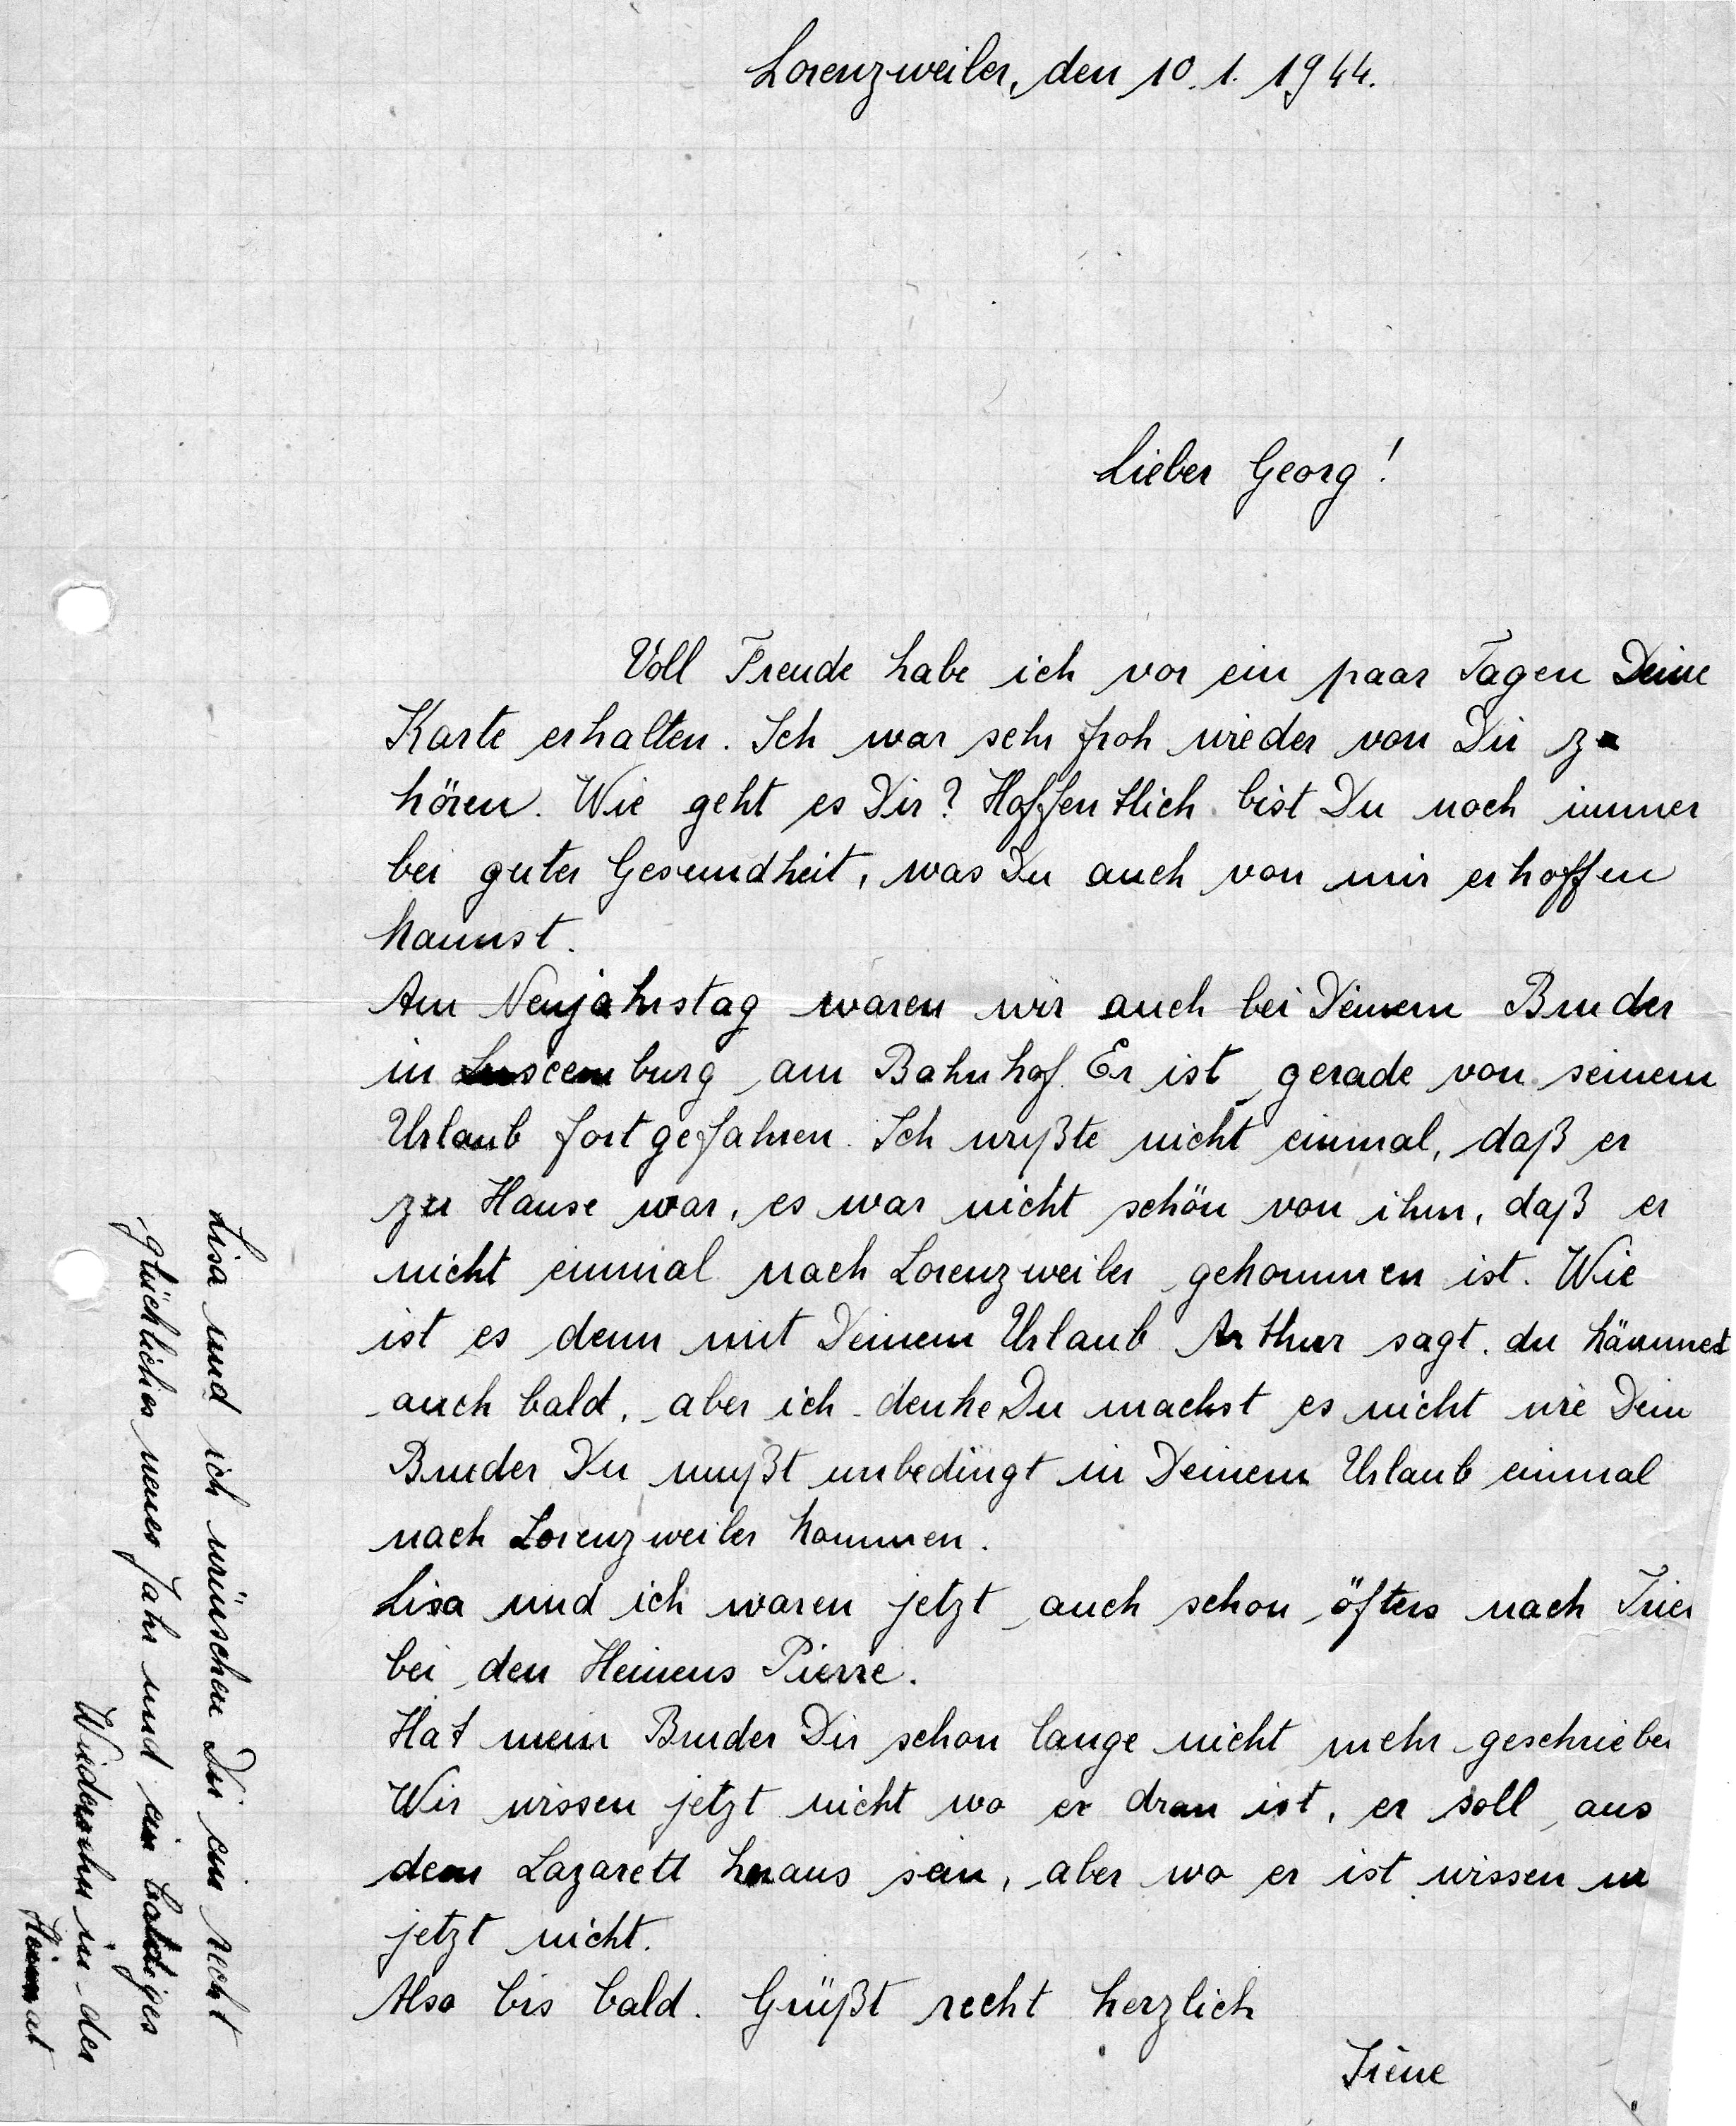 Lorenzweiler, den 10.1.1944.
Lieber Georg!
Voll Freude habe ich vor ein paar Tagen Deine
Karte erhalten. Ich war sehr froh wieder von Dir zu
hören. Wie geht es Dir? Hoffentlich bist Du noch immer
bei guter Gesundheit, was Du auch von mir erhoffen
kannst.
Am Neujahrstag waren wir auch bei Deinem Bruder
in Luxemburg am Bahnhof. Er ist gerade von seinem
Urlaub fortgefahren. Ich wußte nicht einmal, daß er
zu Hause war, es war nicht schön von ihm, daß er
nicht einmal nach Lorenzweiler gekommen ist. Wie
ist es denn mit Deinem Urlaub Arthur sagt, du kämmst
auch bald, aber ich denke Du machst es nicht wie Dein
Bruder Du mußt unbedingt in Deinem Urlaub einmal
nach Lorenzweiler kommen.
Lisa und ich waren jetzt auch schon öfters nach Trier
bei den Heinens Pierre.
Hat mein Bruder Dir schon lange nicht mehr geschrieben
Wir wissen jetzt nicht wo er dran ist, er soll aus
dem Lazarett heraus sein, aber wo er ist wissen wir
jetzt nicht.
Also bis bald. Grüßt recht herzlich
Irène
Lisa und ich wünschen Dir ein recht
glückliches neues Jahr und ein baldiges
Wiedersehn in der
Heimat